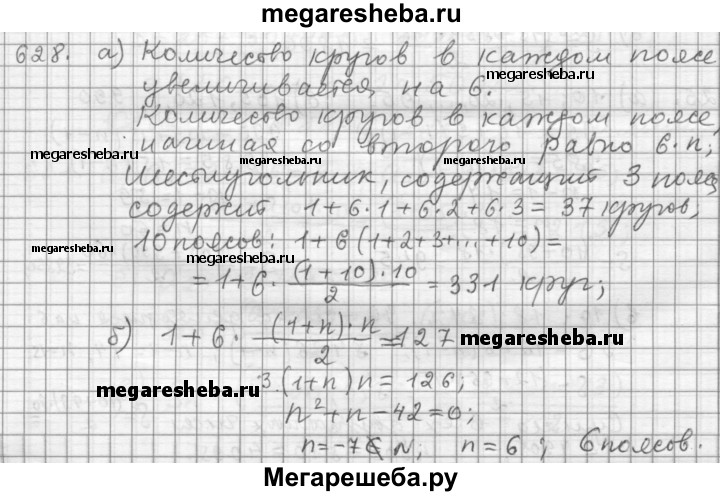 megaresheba.ru
628. а) Количество кругов в каждом поясе
megaresheba.ru
увеличивается на 6.
megaresheba.ru
Количество кругов в каждом поясе,
начиная со второго равно 6·n;
megaresheba.ru megaresheba.ru megaresheba.ru
Шестиугольник, содержащий 3 пояса
содержит 1+6·1+6·2+6·3=37 кругов,
megaresheba.ru
10 поясов: 1+6(1+2+3+...+10)=
megaresheba.ru megaresheba.ru
=1+6·(1+10)·10/2=331 круг;
б) 1+6·(1+n)·n/2=127
megaresheba.ru
3·(1+n)n=126;
megaresheba.ru
n²+n-42=0;
n=-7∉N; n=6; 6 поясов.
Мегарешеба.ру